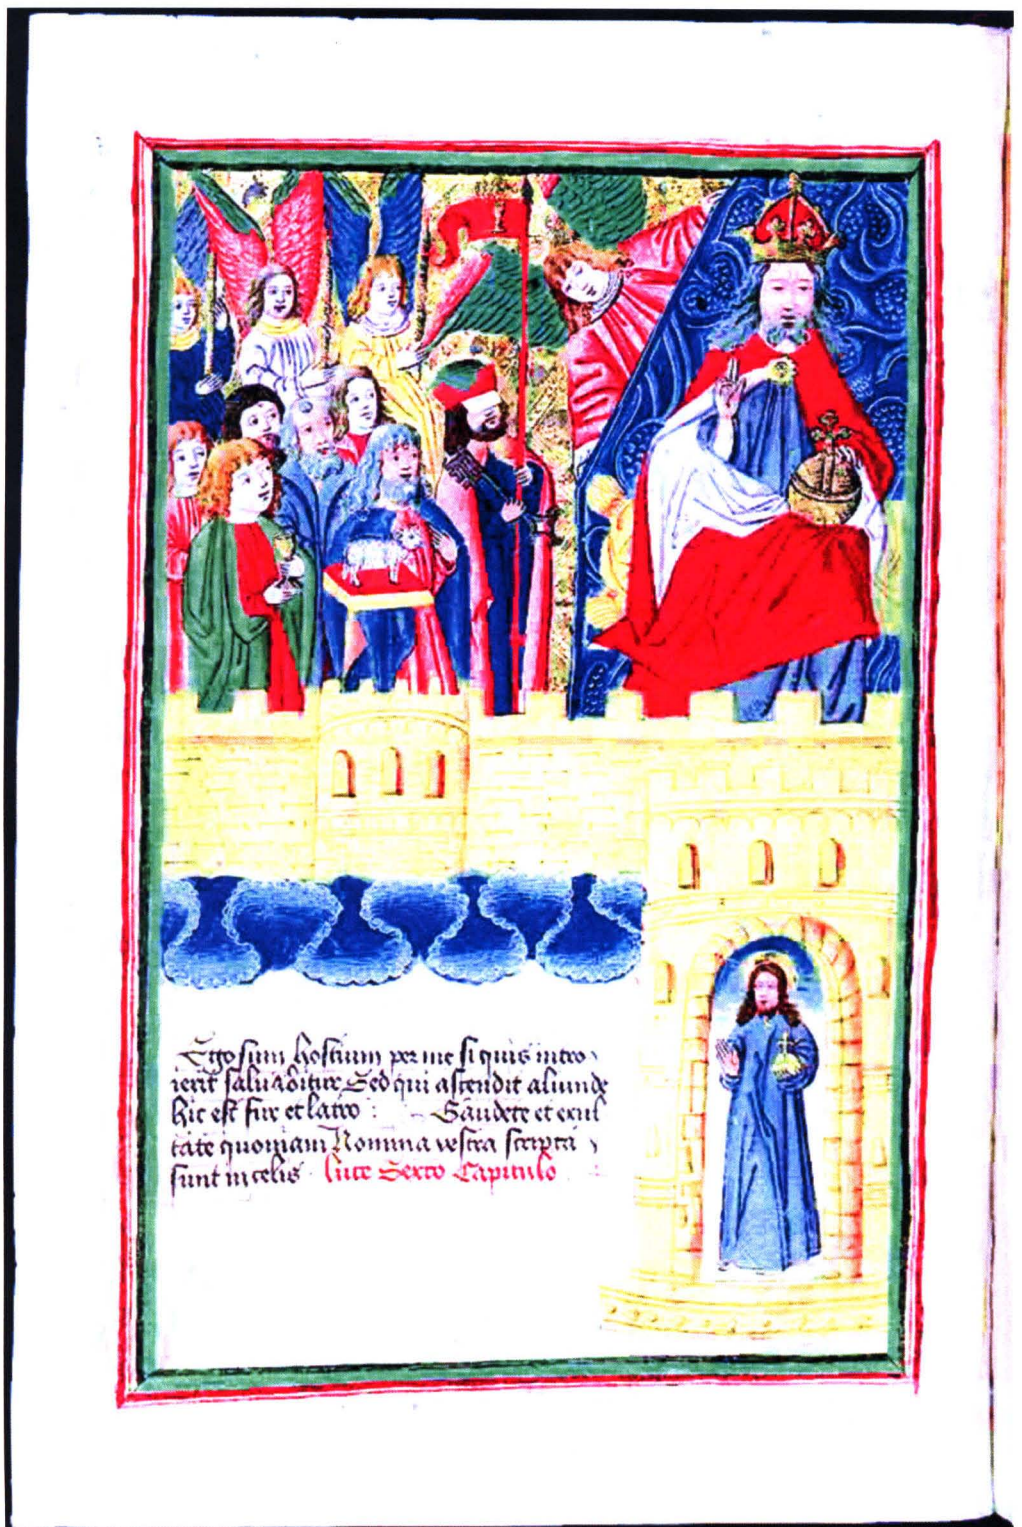 Ego sum hostium per me si quis intro
ierit saluabitur Sed qui astendit aliunde
hic est fur et latro : Gaudete et exul
tate quoniam Nomina vestra scripta
sunt in celis · luce Sexto Capitulo